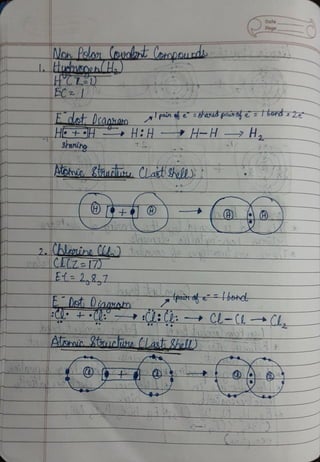 Date
Page
Non Polar Covalent Compounds
1. Hydrogen (H₂
H (Z=1)
EC = 1
E⁻ dot Diagram
1 pair of e⁻ = shared pair of e⁻ = 1 bond = 2e⁻
H• + •H → H:H → H–H → H₂
sharing
Atomic Structure (Last Shell):
H + H → H H
2. Chlorine (Cl₂)
Cl (Z = 17)
EC = 2,8,7
E⁻ Dot Diagram
1 pair of e⁻ = 1 bond
:Cl• + •Cl: → :Cl:Cl: → Cl – Cl → Cl₂
Atomic Structure (Last Shell)
Cl + Cl → Cl Cl